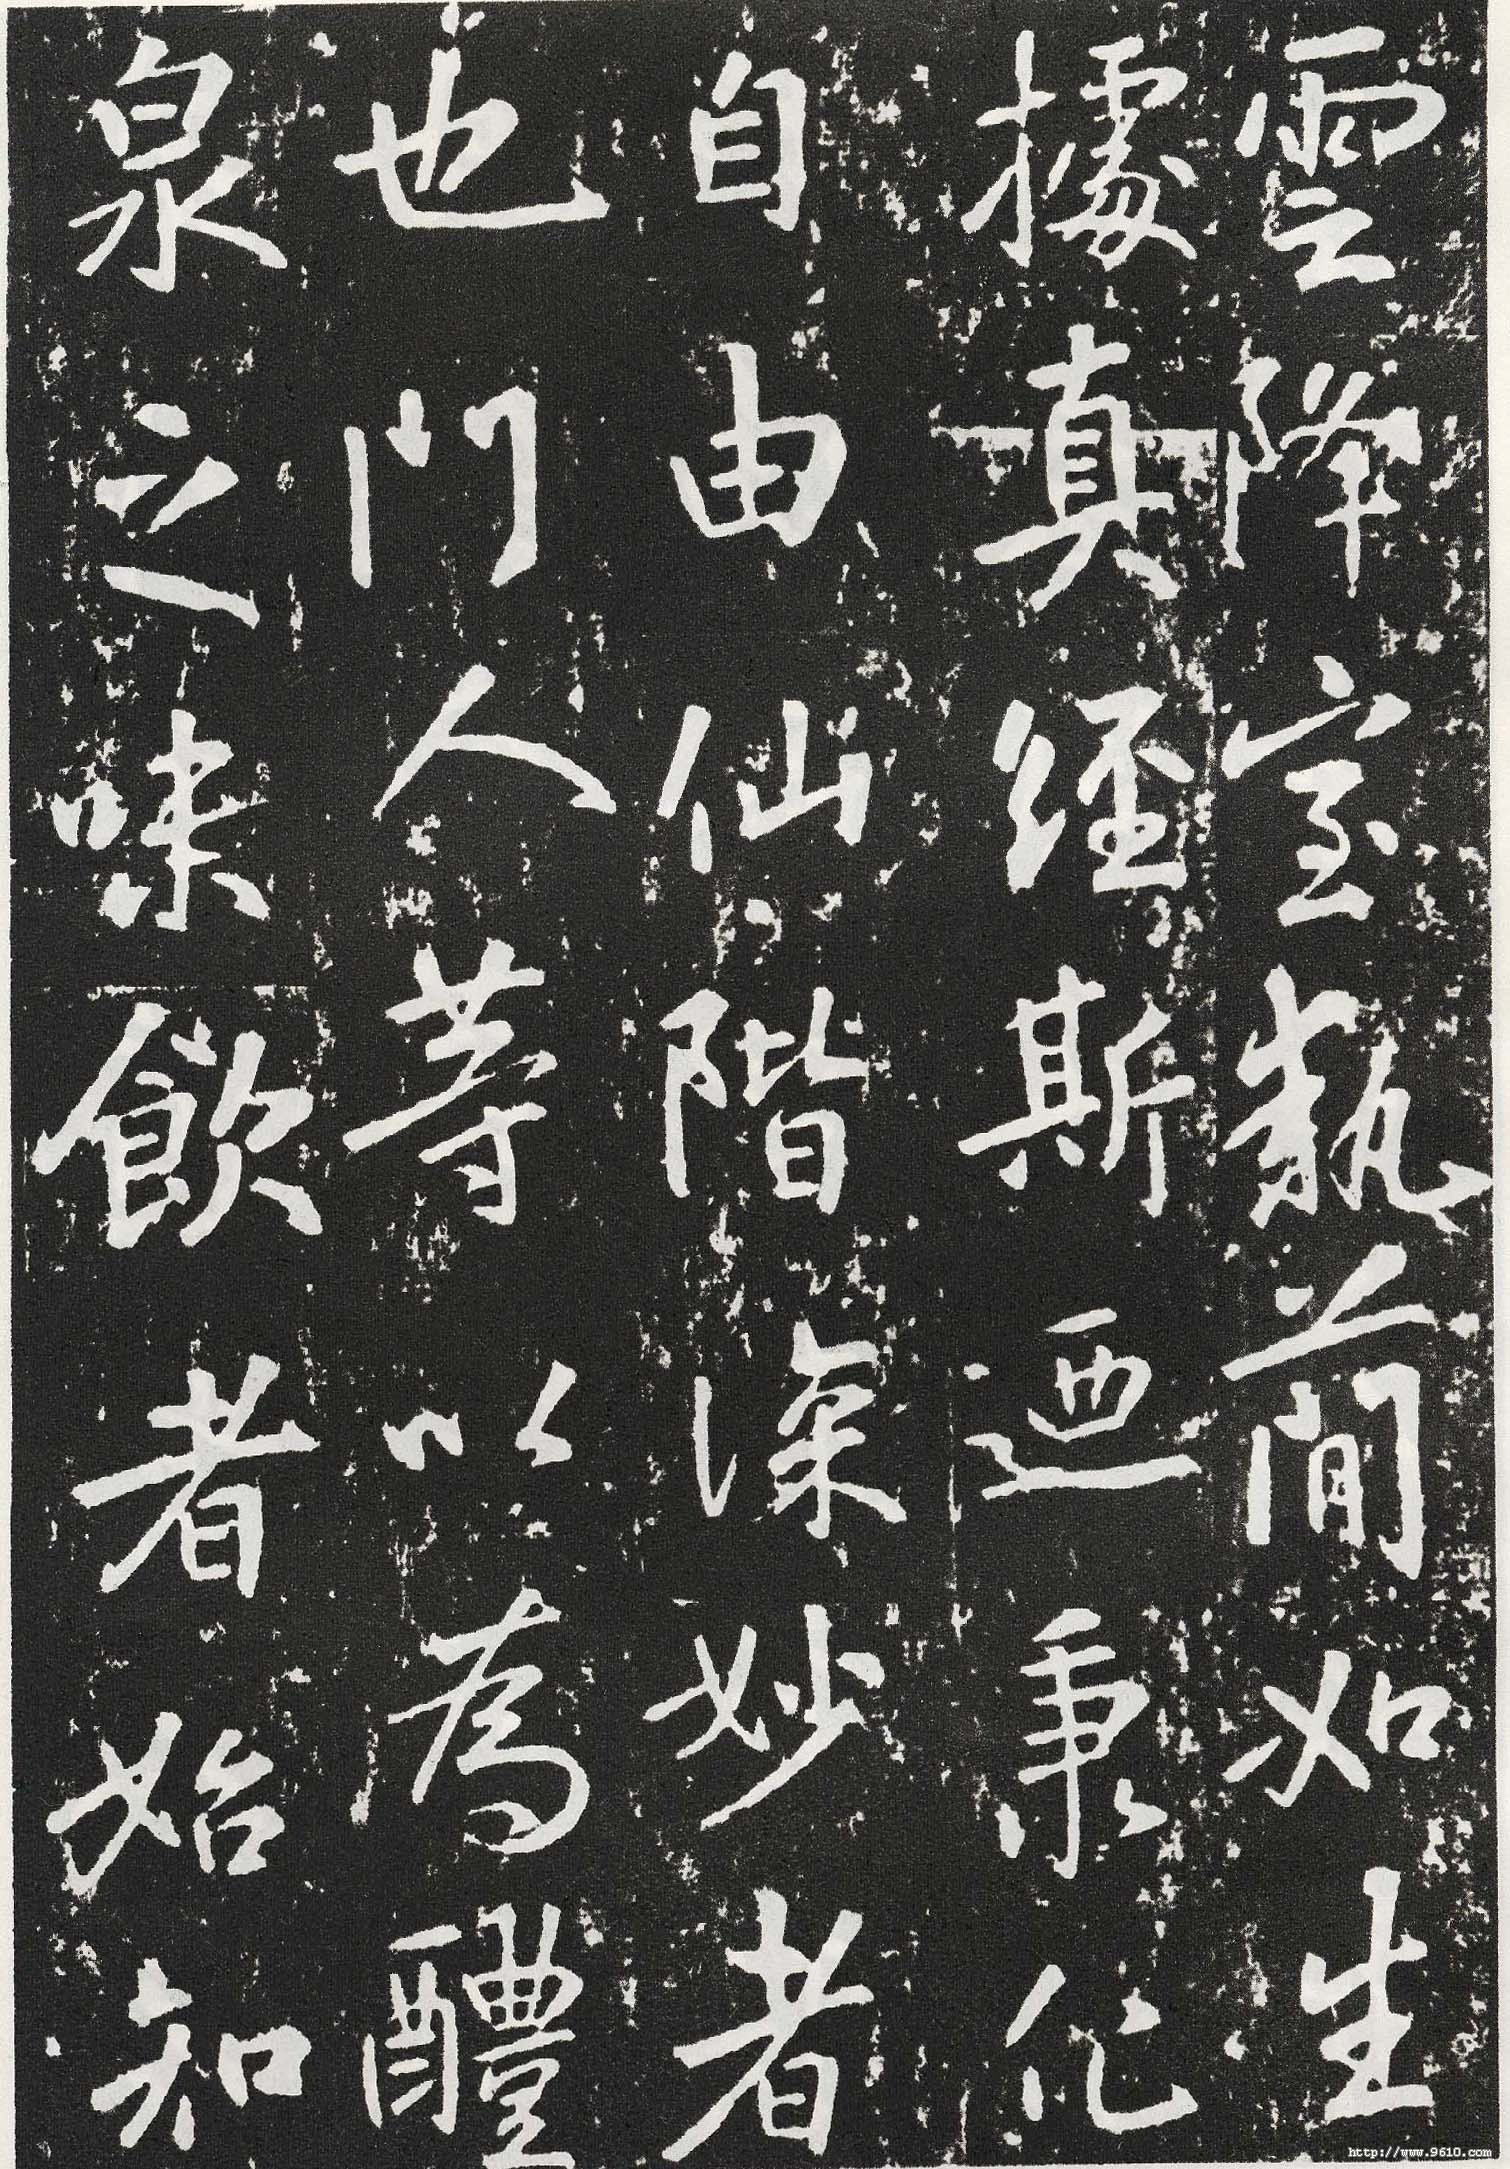 雲降室執蕳如生
據真經斯迺秉化
自由仙階深妙者
也門人等以為醴
泉之味飲者始知
http://www.9610.com